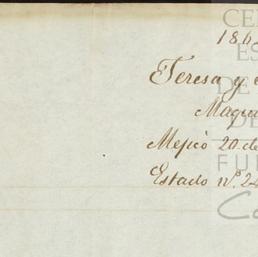 186
Teresa y
Mejico 20 de
Estado nº. 24
CE
ES
DE
DE
FU